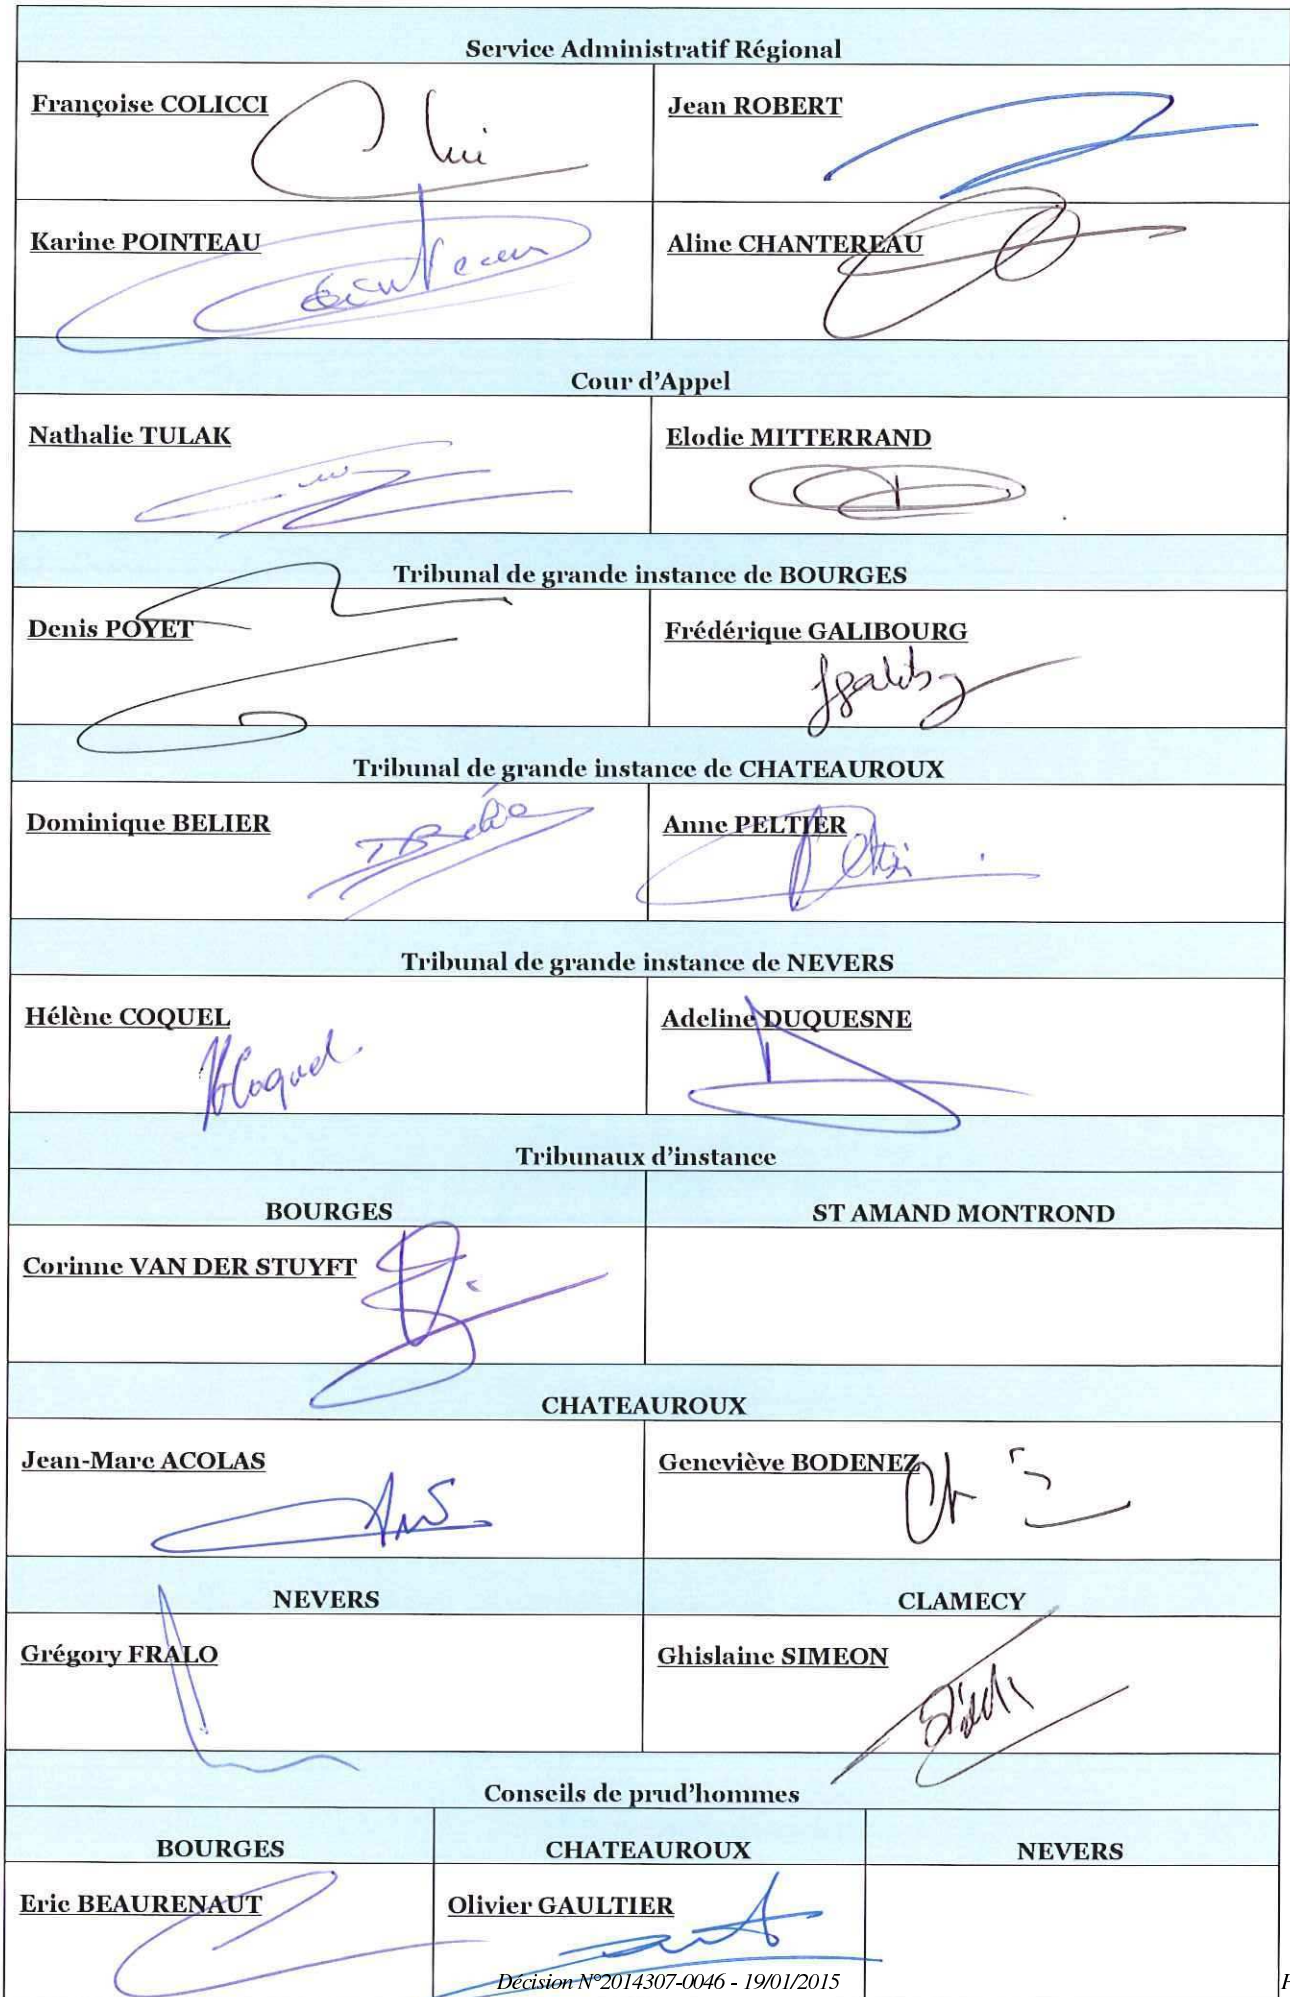 Service Administratif Régional
Françoise COLICCI
Jean ROBERT
Karine POINTEAU
Aline CHANTEREAU
Cour d'Appel
Nathalie TULAK
Elodie MITTERRAND
Tribunal de grande instance de BOURGES
Denis POYET
Frédérique GALIBOURG
Tribunal de grande instance de CHATEAUROUX
Dominique BELIER
Anne PELTIER
Tribunal de grande instance de NEVERS
Hélène COQUEL
Adeline DUQUESNE
HCoquel
Tribunaux d'instance
BOURGES
ST AMAND MONTROND
Corinne VAN DER STUYFT
CHATEAUROUX
Jean-Marc ACOLAS
Geneviève BODENEZ
NEVERS
CLAMECY
Grégory FRALO
Ghislaine SIMEON
Conseils de prud'hommes
BOURGES
CHATEAUROUX
NEVERS
Eric BEAURENAUT
Olivier GAULTIER
Décision N°2014307-0046 - 19/01/2015